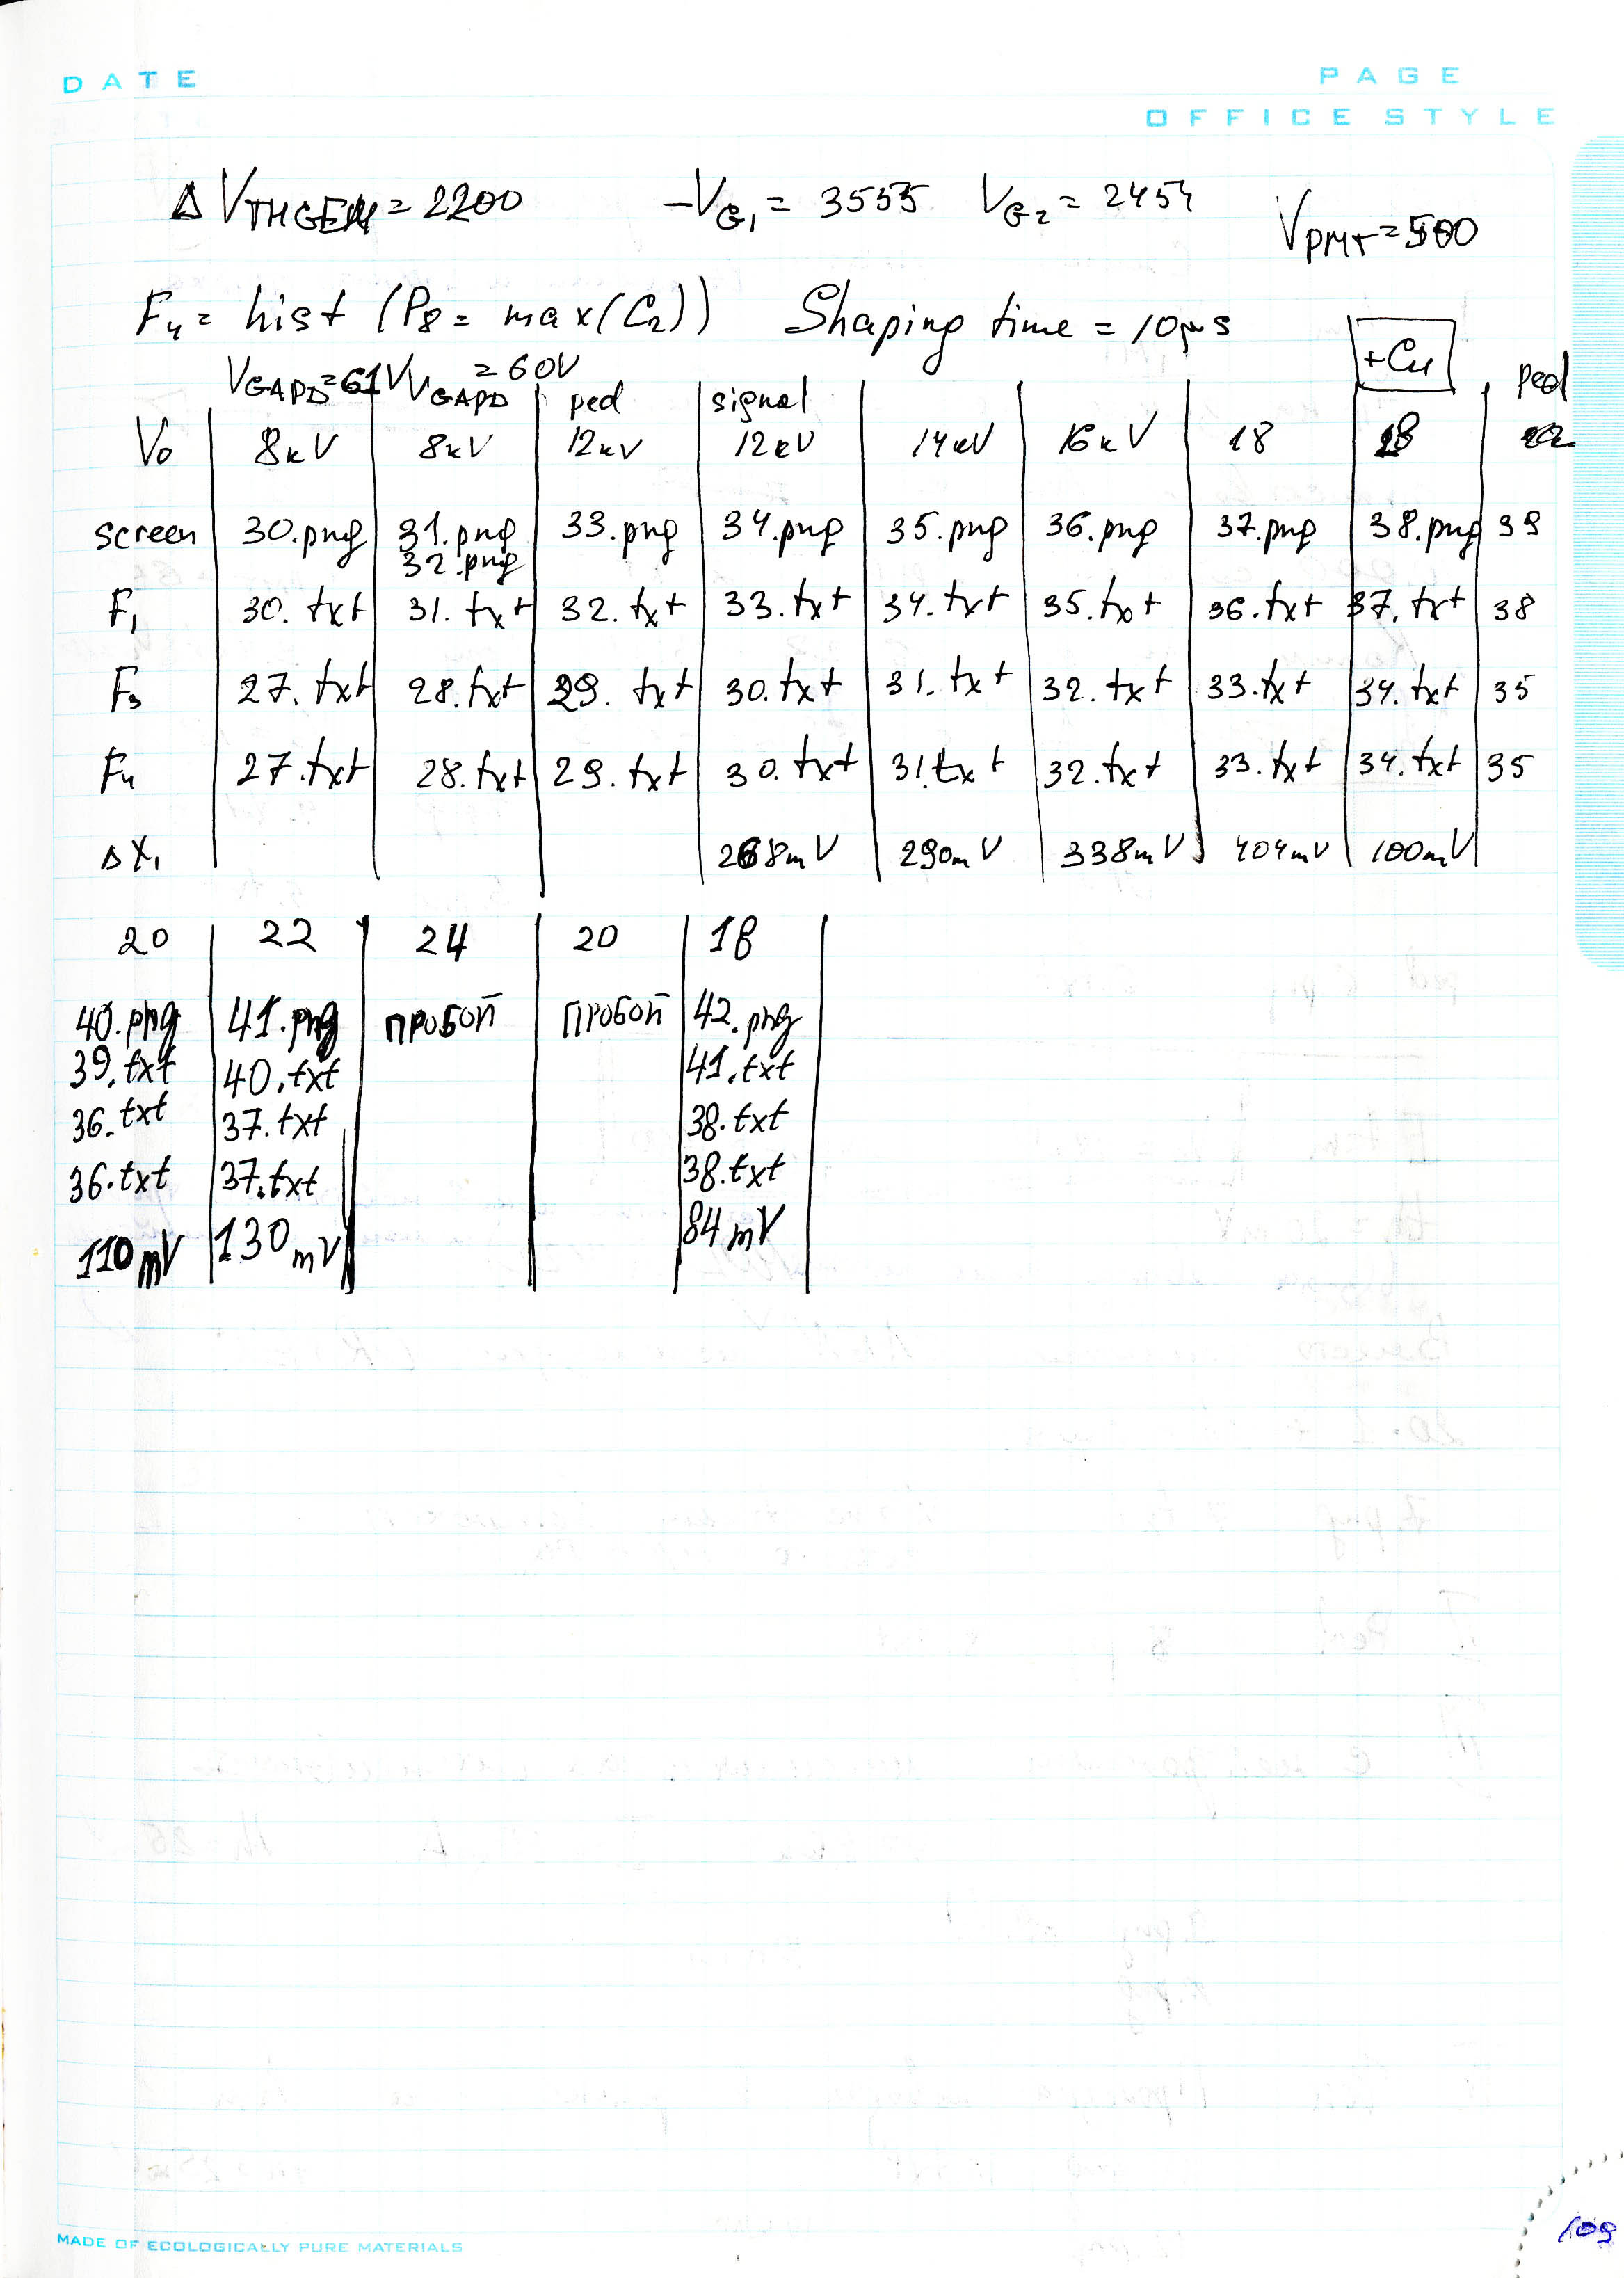 DATE
PAGE
OFFICE STYLE
Δ V_THGEM = 2200 -V_G1 = 3555 V_G2 = 2454 V_PMT = 500
F₄ = hist (P8 = max(C₂)) Shaping time = 10 μs +Cu
V_GAPD = 61V V_GAPD = 60V ped signal ped
V₀ 8kV 8kV 12kV 12kV 14kV 16kV 18 18 22
screen 30.png 31.png 33.png 34.png 35.png 36.png 37.png 38.png 39
32.png
F₁ 30.txt 31.txt 32.txt 33.txt 34.txt 35.txt 36.txt 37.txt 38
F₃ 27.txt 28.txt 29.txt 30.txt 31.txt 32.txt 33.txt 34.txt 35
F₄ 27.txt 28.txt 29.txt 30.txt 31.txt 32.txt 33.txt 34.txt 35
Δ X₁ 268mV 290mV 338mV 404mV 100mV
20 22 24 20 18
40.png 41.png пробой пробой 42.png
39.txt 40.txt 41.txt
36.txt 37.txt 38.txt
36.txt 37.txt 38.txt
110mV 130mV 84mV
MADE OF ECOLOGICALLY PURE MATERIALS
109